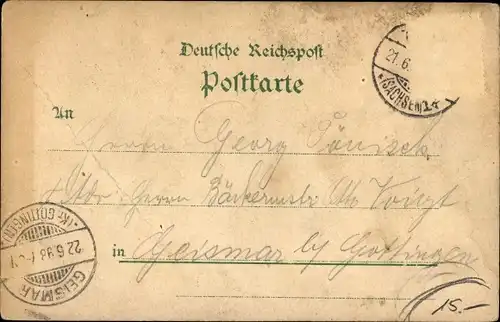 Deutsche Reichspost
Postkarte
21.6.
(SACHSEN)
An
Herrn Georg Jänisch
Herrn Bäckermstr Otto Voigt
in Geismar b/ Göttingen
(KR. GÖTTINGEN)
22.6.98
GEISMAR
15.-